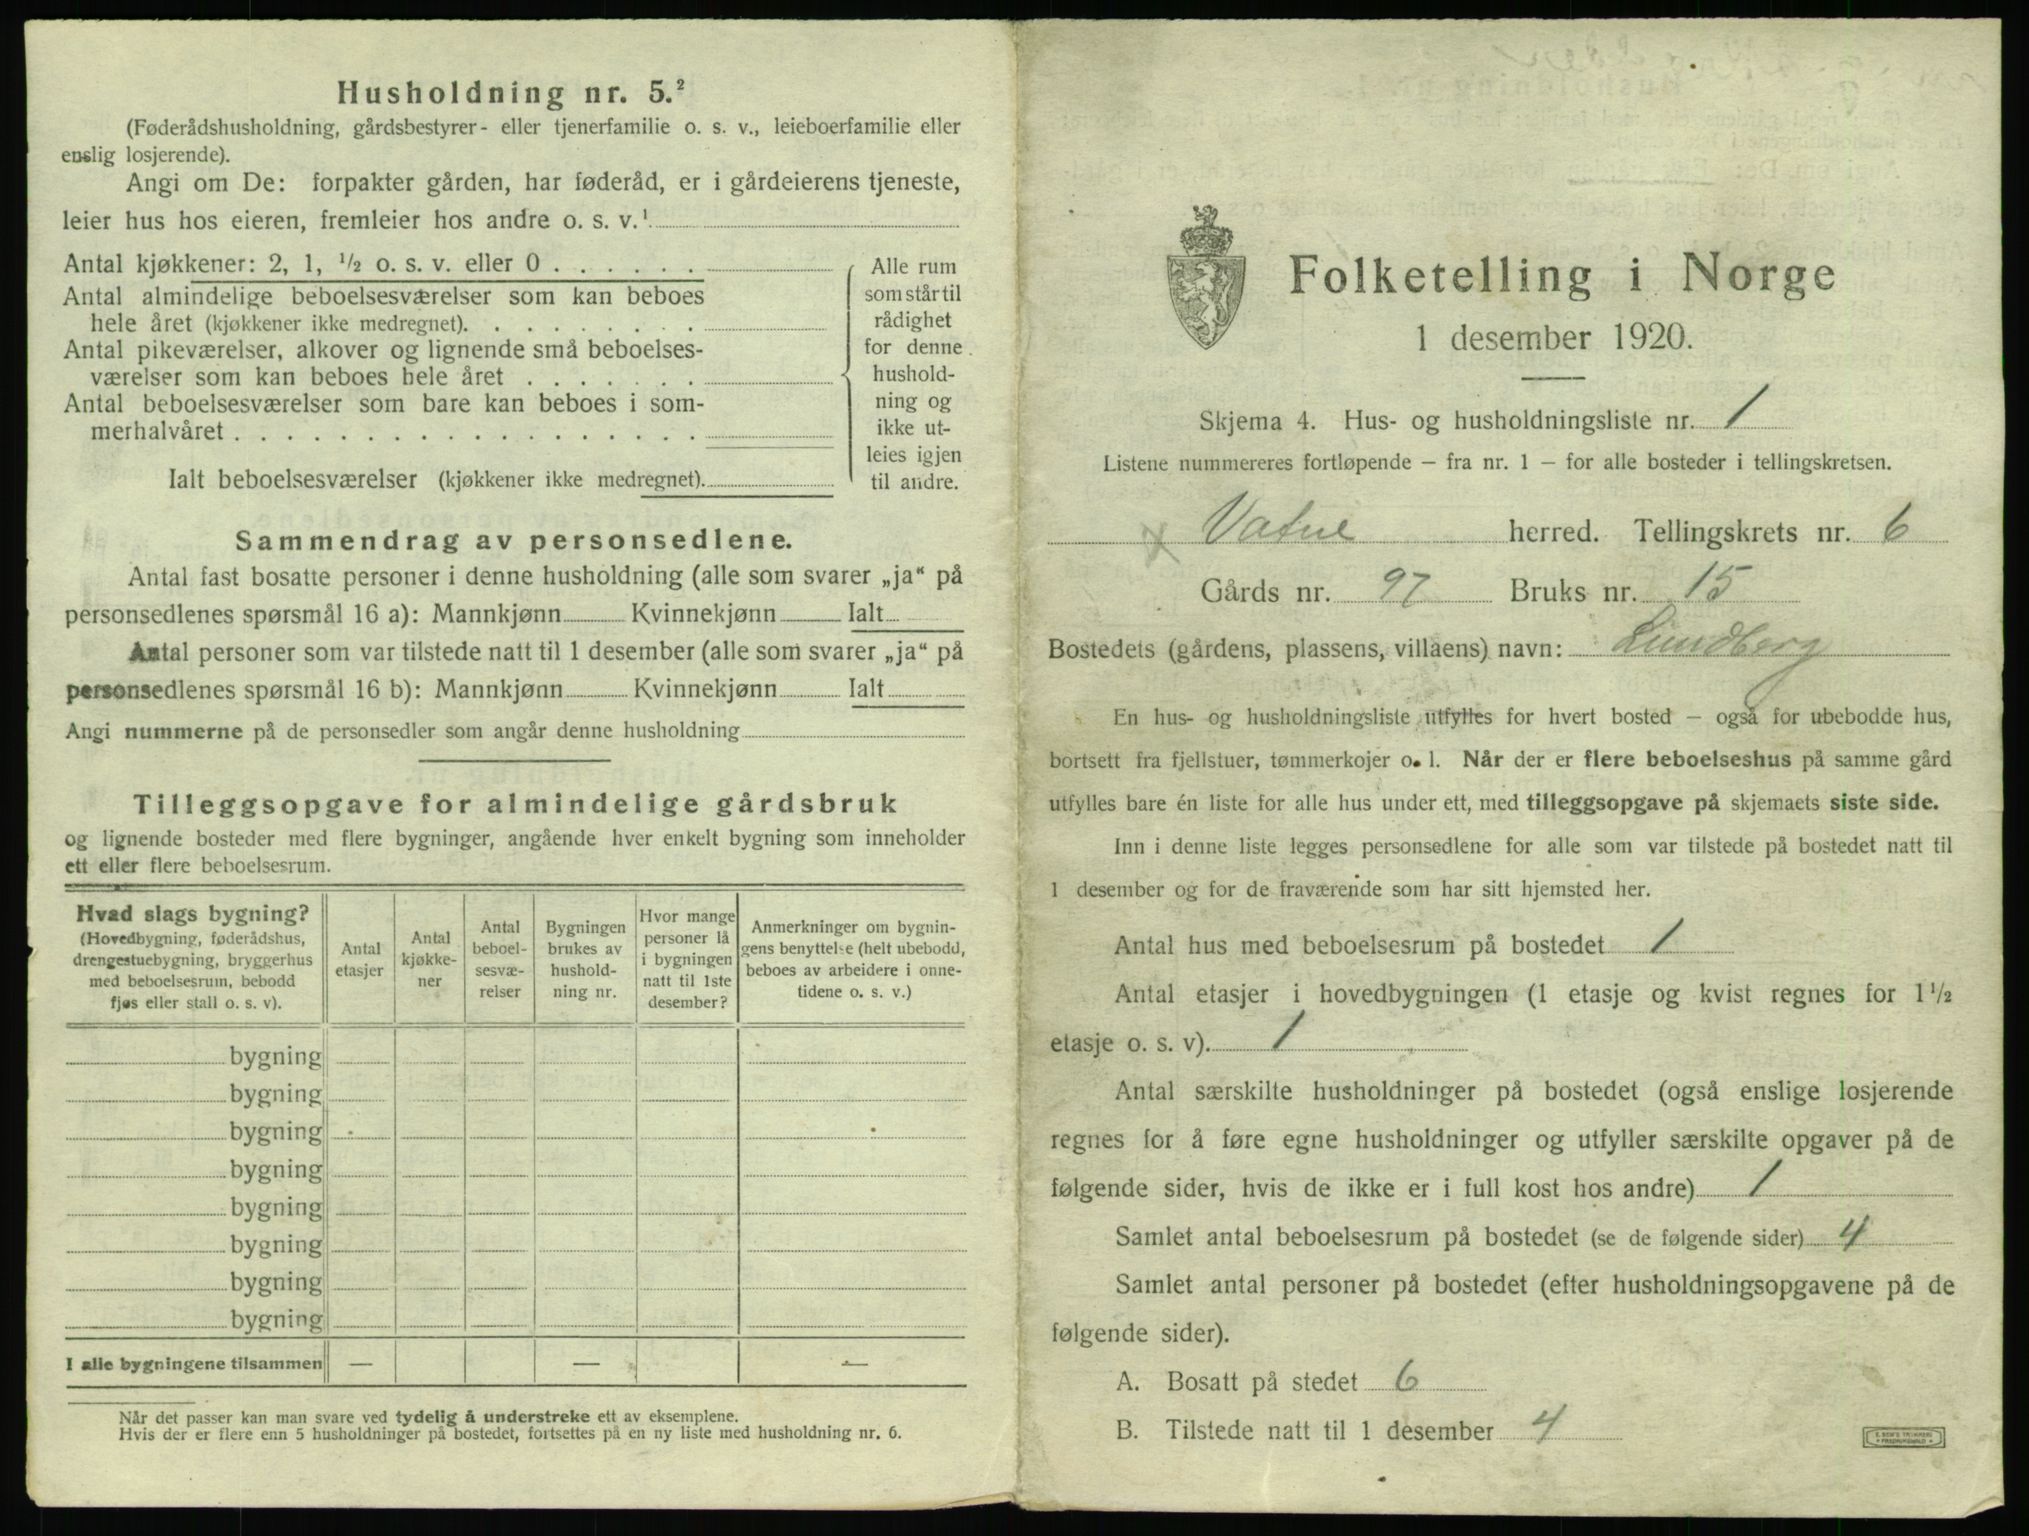 Husholdning nr. 5.²
(Føderådshusholdning, gårdsbestyrer- eller tjenerfamilie o. s. v., leieboerfamilie eller
enslig losjerende).
Angi om De: forpakter gården, har føderåd, er i gårdeierens tjeneste,
leier hus hos eieren, fremleier hos andre o. s. v.¹
Antal kjøkkener: 2, 1, ½ o. s. v. eller 0 . . . . . .
Antal almindelige beboelsesværelser som kan beboes
hele året (kjøkkener ikke medregnet). . . . . . . . .
Antal pikeværelser, alkover og lignende små beboelses-
værelser som kan beboes hele året . . . . . . .
Antal beboelsesværelser som bare kan beboes i som-
merhalvåret . . . . . . . . . . . . . . . . . .
Ialt beboelsesværelser (kjøkkener ikke medregnet).
Alle rum
som står til
rådighet
for denne
hushold-
ning og
ikke ut-
leies igjen
til andre.
Sammendrag av personsedlene.
Antal fast bosatte personer i denne husholdning (alle som svarer „ja“ på
personsedlenes spørsmål 16 a): Mannkjønn Kvinnekjønn Ialt
Antal personer som var tilstede natt til 1 desember (alle som svarer „ja“ på
personsedlenes spørsmål 16 b): Mannkjønn Kvinnekjønn Ialt
Angi nummerne på de personsedler som angår denne husholdning
Tilleggsopgave for almindelige gårdsbruk
og lignende bosteder med flere bygninger, angående hver enkelt bygning som inneholder
ett eller flere beboelsesrum.
Hvad slags bygning?
(Hovedbygning, føderådshus,
drengestuebygning, bryggerhus
med beboelsesrum, bebodd
fjøs eller stall o. s. v).
Antal
etasjer
Antal
kjøkke-
ner
Antal
beboel-
sesvæ-
relser
Bygningen
brukes av
hushold-
ning nr.
Hvor mange
personer lå
i bygningen
natt til 1ste
desember?
Anmerkninger om bygnin-
gens benyttelse (helt ubebodd,
beboes av arbeidere i onne-
tidene o. s. v.)
bygning
bygning
bygning
bygning
bygning
bygning
bygning
bygning
I alle bygningene tilsammen — — —
Når det passer kan man svare ved tydelig å understreke ett av eksemplene.
Hvis der er flere enn 5 husholdninger på bostedet, fortsettes på en ny liste med husholdning nr. 6.
Folketelling i Norge
1 desember 1920.
Skjema 4. Hus- og husholdningsliste nr. 1
Listene nummereres fortløpende – fra nr. 1 – for alle bosteder i tellingskretsen.
x Vatne herred. Tellingskrets nr. 6
Gårds nr. 97 Bruks nr. 15
Bostedets (gårdens, plassens, villaens) navn: Lundberg
En hus- og husholdningsliste utfylles for hvert bosted – også for ubebodde hus,
bortsett fra fjellstuer, tømmerkojer o. l. Når der er flere beboelseshus på samme gård
utfylles bare én liste for alle hus under ett, med tilleggsopgave på skjemaets siste side.
Inn i denne liste legges personsedlene for alle som var tilstede på bostedet natt til
1 desember og for de fraværende som har sitt hjemsted her.
Antal hus med beboelsesrum på bostedet 1
Antal etasjer i hovedbygningen (1 etasje og kvist regnes for 1½
etasje o. s. v). 1
Antal særskilte husholdninger på bostedet (også enslige losjerende
regnes for å føre egne husholdninger og utfyller særskilte opgaver på de
følgende sider, hvis de ikke er i full kost hos andre) 1
Samlet antal beboelsesrum på bostedet (se de følgende sider) 4
Samlet antal personer på bostedet (efter husholdningsopgavene på de
følgende sider).
A. Bosatt på stedet 6
B. Tilstede natt til 1 desember 4